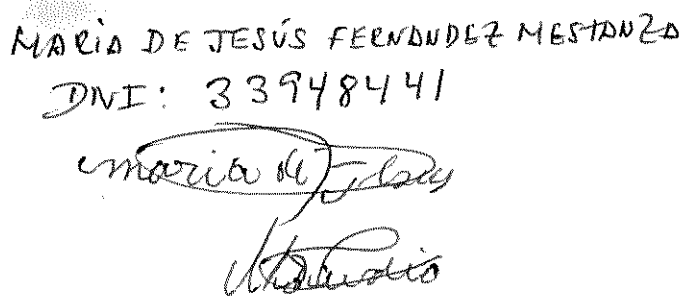 MARIA DE JESÚS FERNANDEZ MESTANZA
DNI: 33948441
maria de Jesus